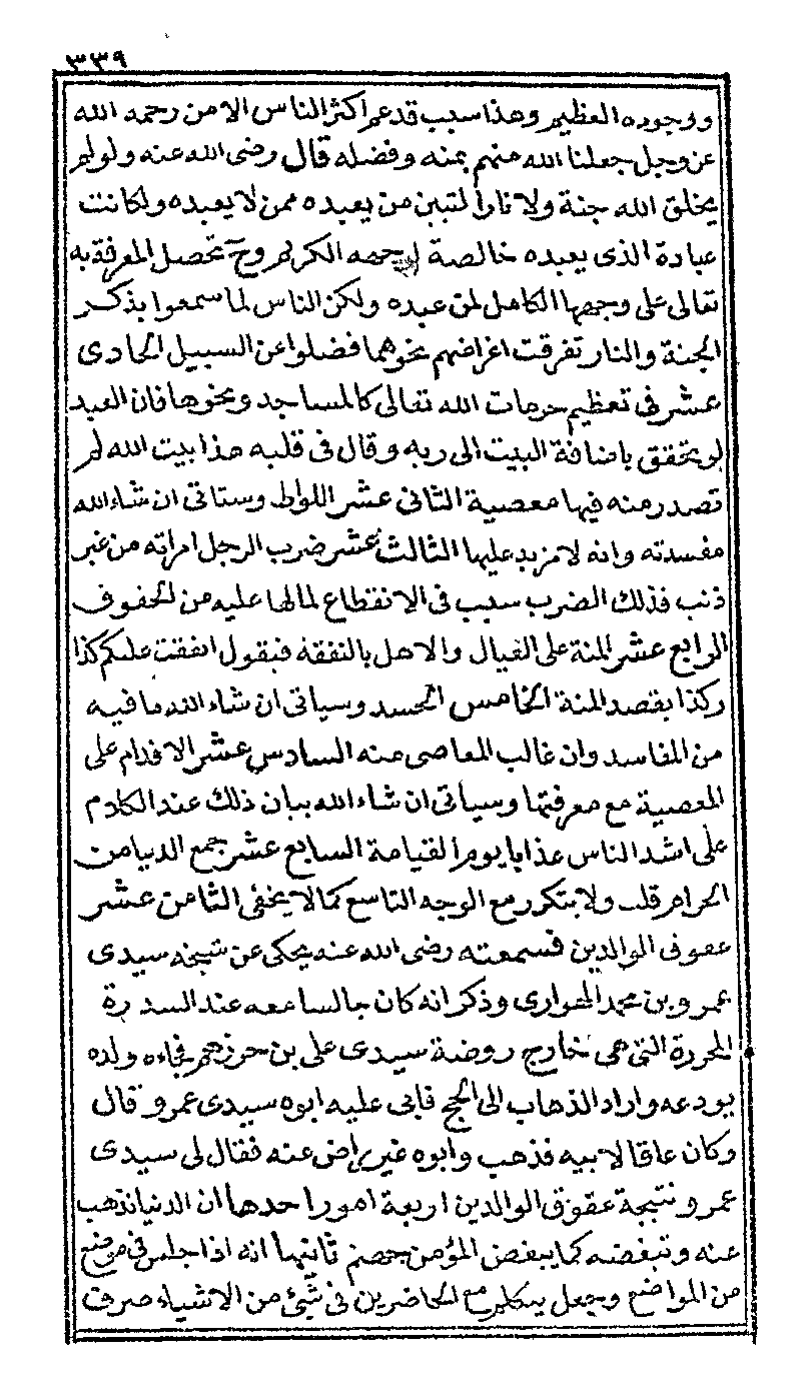 ٣٣٩
ووجوده العظيم وهذا سبب قد عم اكثر الناس الا من رحمه الله
عز وجل جعلنا الله منهم بمنه وفضله قال رضى الله عنه ولو لم
يخلق الله جنة ولا نارا لتبين من يعبده ممن لا يعبده ولكانت
عبادة الذى يعبده خالصة لوجهه الكريم وح تحصل المعرفة به
تعالى على وجهها الكامل لمن عبده ولكن الناس لما سمعوا بذكر
الجنة والنار تفرقت اغراضهم نحوهما فضلوا عن السبيل الحادى
عشر فى تعظيم حرمات الله تعالى كالمساجد ونحوها فان العبد
لو تحقق باضافة البيت الى ربه وقال فى قلبه هذا بيت الله لم
تصدر منه فيها معصية الثانى عشر اللواط وستاتى ان شاء الله
مفسدته وانه لا مزيد عليها الثالث عشر ضرب الرجل امراته من غير
ذنب فذلك الضرب سبب فى الانقطاع لما لها عليه من الحقوق
الرابع عشر المنة على العيال والاهل بالنفقة فيقول انفقت عليكم كذا
وكذا بقصد المنة الخامس الحسد وسياتى ان شاء الله ما فيه
من المفاسد وان غالب المعاصى منه السادس عشر الاقدام على
المعصية مع معرفتها وسياتى ان شاء الله بيان ذلك عند الكلام
على اشد الناس عذابا يوم القيامة السابع عشر جمع الدنيا من
الحرام قلت ولا يتكرر مع الوجه التاسع كما لا يخفى الثامن عشر
عقوق الوالدين فسمعته رضى الله عنه يحكى عن شيخه سيدى
عمرو بن محمد الهوارى وذكر انه كان جالسا معه عند السدرة
المحررة التى هى خارج روضة سيدى على بن حرزهم فجاءه ولده
يودعه واراد الذهاب الى الحج فابى عليه ابوه سيدى عمرو قال
وكان عاقا لابيه فذهب وابوه غير راض عنه فقال لى سيدى
عمرو نتيجة عقوق الوالدين اربعة امور احدها ان الدنيا تذهب
عنه وتبغضه كما يبغض المؤمن جهنم ثانيها انه اذا جلس فى موضع
من المواضع وجعل يتكلم مع الحاضرين فى شيئ من الاشياء صرف